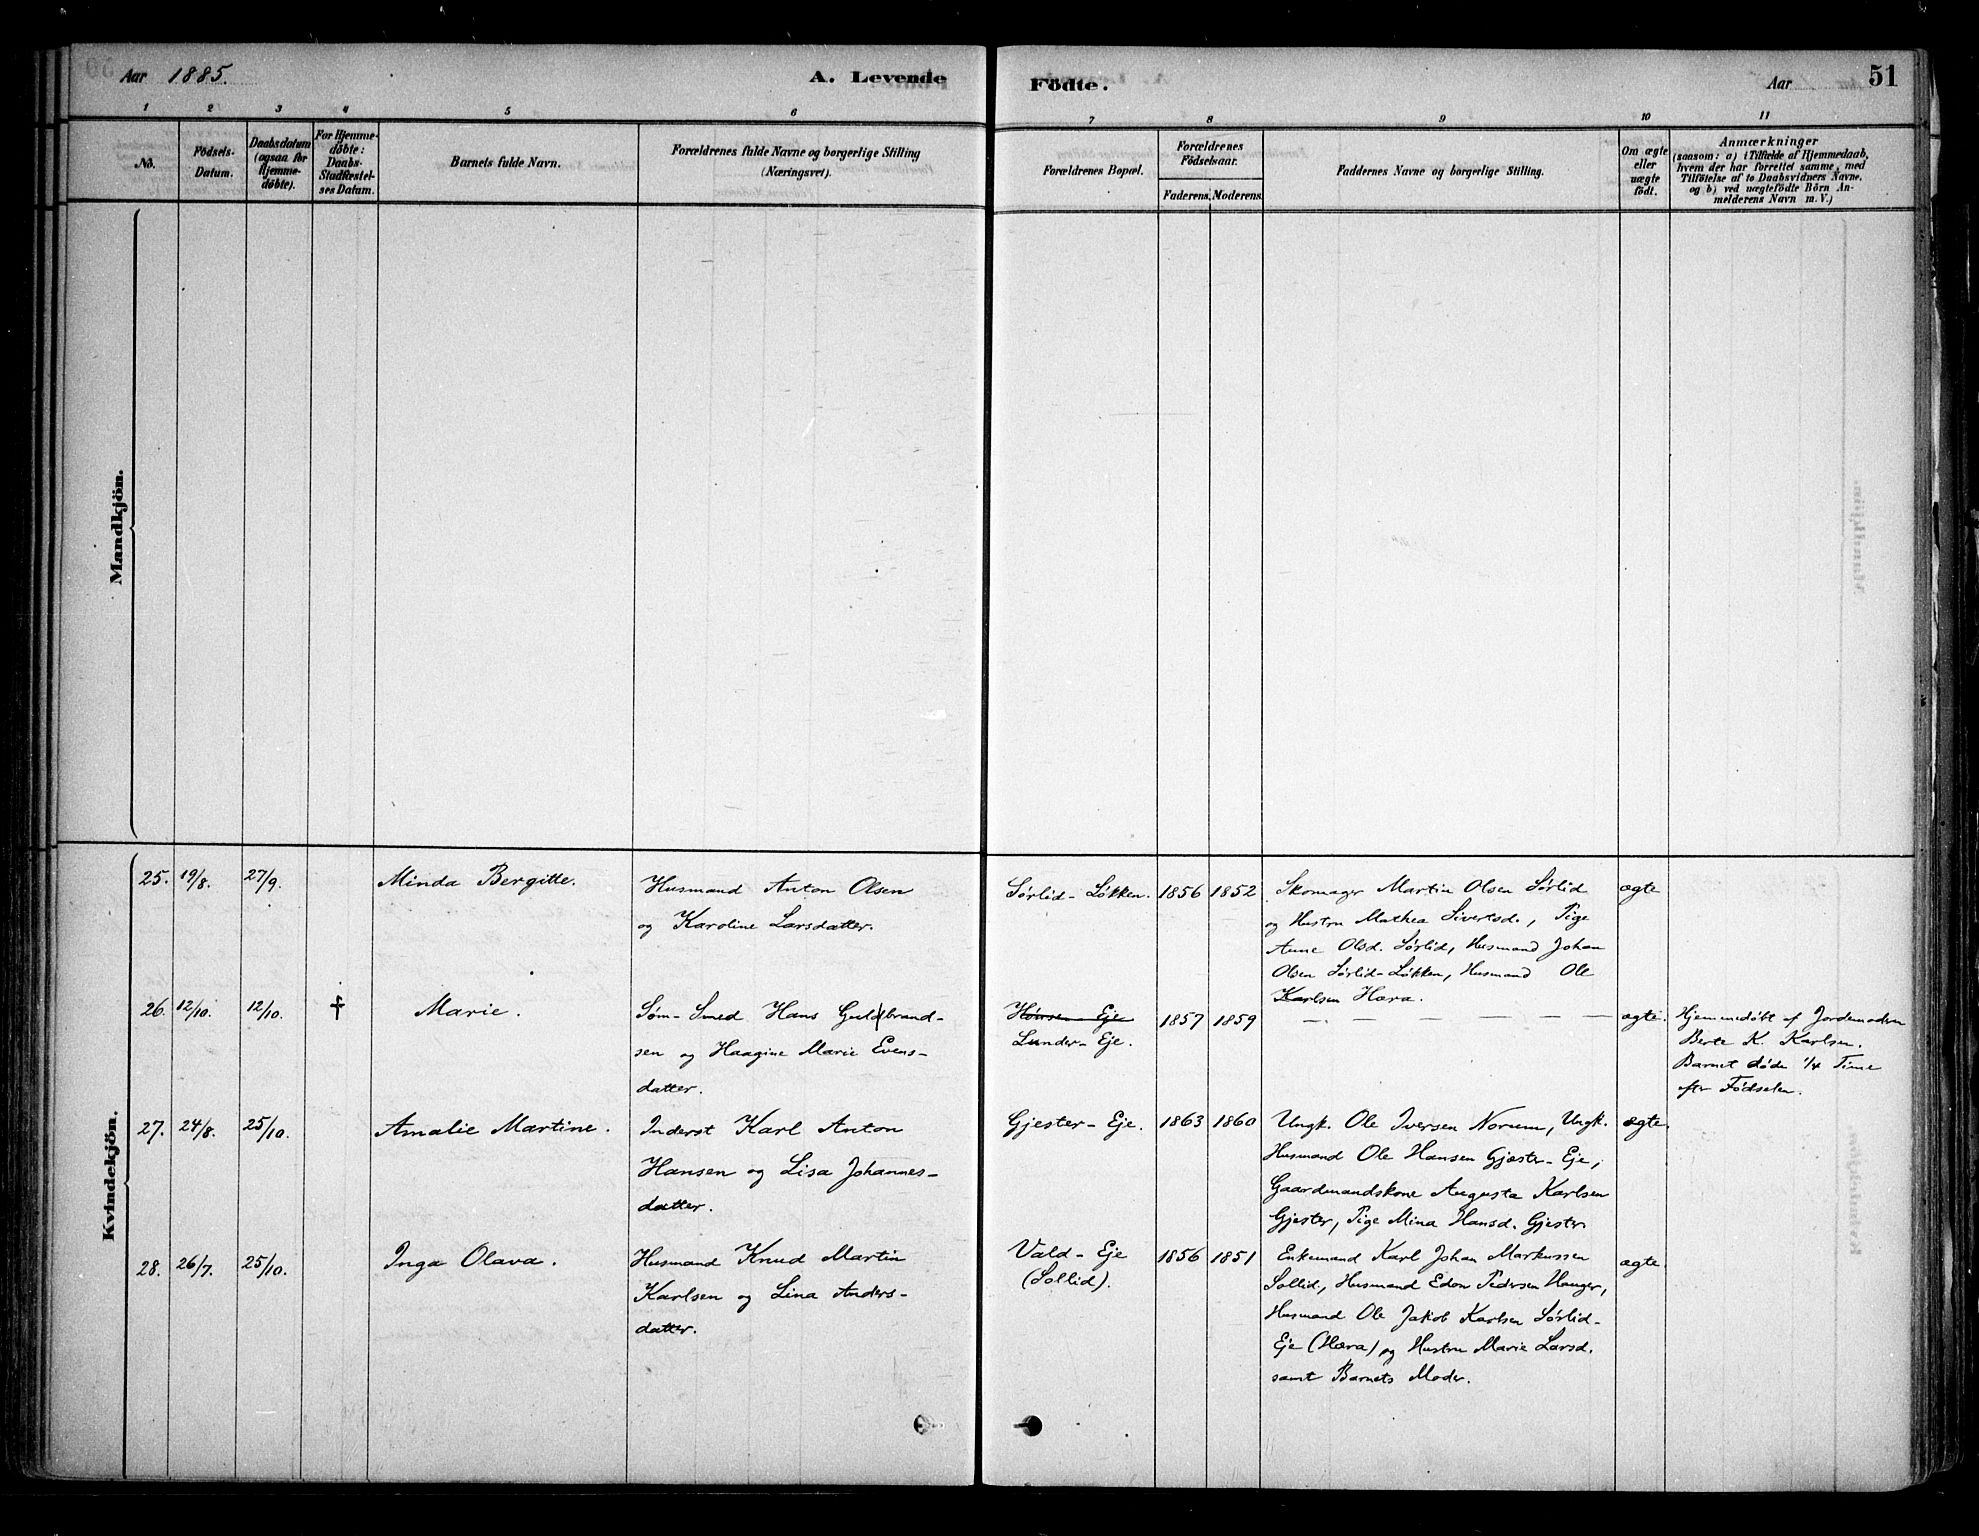 Aar 1885.
A. Levende
Födte.
Aar
51
1 2 3 4 5 6 7 8 9 10 11
No.
Födsels-
Datum.
Daabsdatum
(ogsaa for
Hjemme-
döbte).
For Hjemme-
döbte:
Daabs-
Stadfæstel-
ses Datum.
Barnets fulde Navn.
Forældrenes fulde Navne og borgerlige Stilling
(Næringsvei).
Forældrenes Bopæl.
Forældrenes
Födselsaar.
Faderens. Moderens.
Faddernes Navne og borgerlige Stilling.
Om ægte
eller
uægte
födt.
Anmærkninger
(saasom: a) i Tilfælde af Hjemmedaab,
hvem der har forrettet samme, med
Tilföielse af to Daabsvidners Navne,
og b) ved uægtefödte Börn An-
melderens Navn m. V.)
Mandkjön.
Kvindekjön.
25. 19/8. 27/9. Minda Bergitte.
Husmand Anton Olsen
og Karoline Larsdatter.
Sørlid-Løkken. 1856 1852
Skomager Martin Olsen Sørlid
og Hustru Mathea Sivertsd., Pige
Anne Olsd. Sørlid, Husmand Johan
Olsen Sørlid-Løkken, Husmand Ole
Karlsen Hæra.
ægte
26. 12/10. 12/10. † Marie.
Søm-Smed Hans Guldbrand-
sen og Haagine Marie Evens-
datter.
Hønsen-Eje
Lunder-Eje.
1857 1859 — — — — — — — ægte.
Hjemmedøbt af Jordemoderen
Berte K. Karlsen.
Barnet døde 1/4 Time
efter Fødselen.
27. 24/8. 25/10. Amalie Martine.
Inderst Karl Anton
Hansen og Lisa Johannes-
datter.
Gjester-Eje. 1863 1860
Ungk. Ole Iversen Norum, Ungk.
Husmand Ole Hansen Gjester-Eje,
Gaardmandskone Augusta Karlsen
Gjester, Pige Mina Hansd. Gjester
ægte.
28. 26/7. 25/10. Inga Olava.
Husmand Knud Martin
Karlsen og Lina Anders-
datter.
Vald-Eje
(Sollid).
1856 1851
Enkemand Karl Johan Markussen
Sollid, Husmand Edon Pedersen Hauger,
Husmand Ole Jakob Karlsen Sørlid-
Eje (Hæra) og Hustru Marie Larsd.
samt Barnets Moder.
ægte.